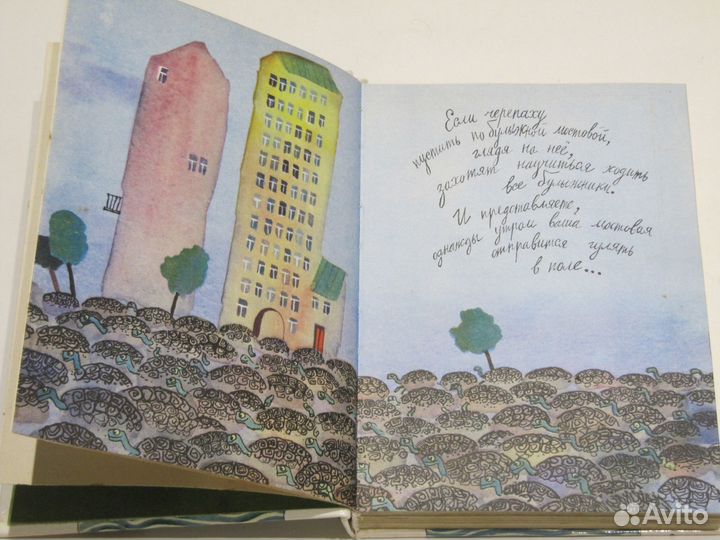 Если черепаху
пустить по булыжной мостовой,
глядя на неё,
захотят научиться ходить
все булыжники.
И представляете,
однажды утром ваша мостовая
отправится гулять
в поле...
Avito